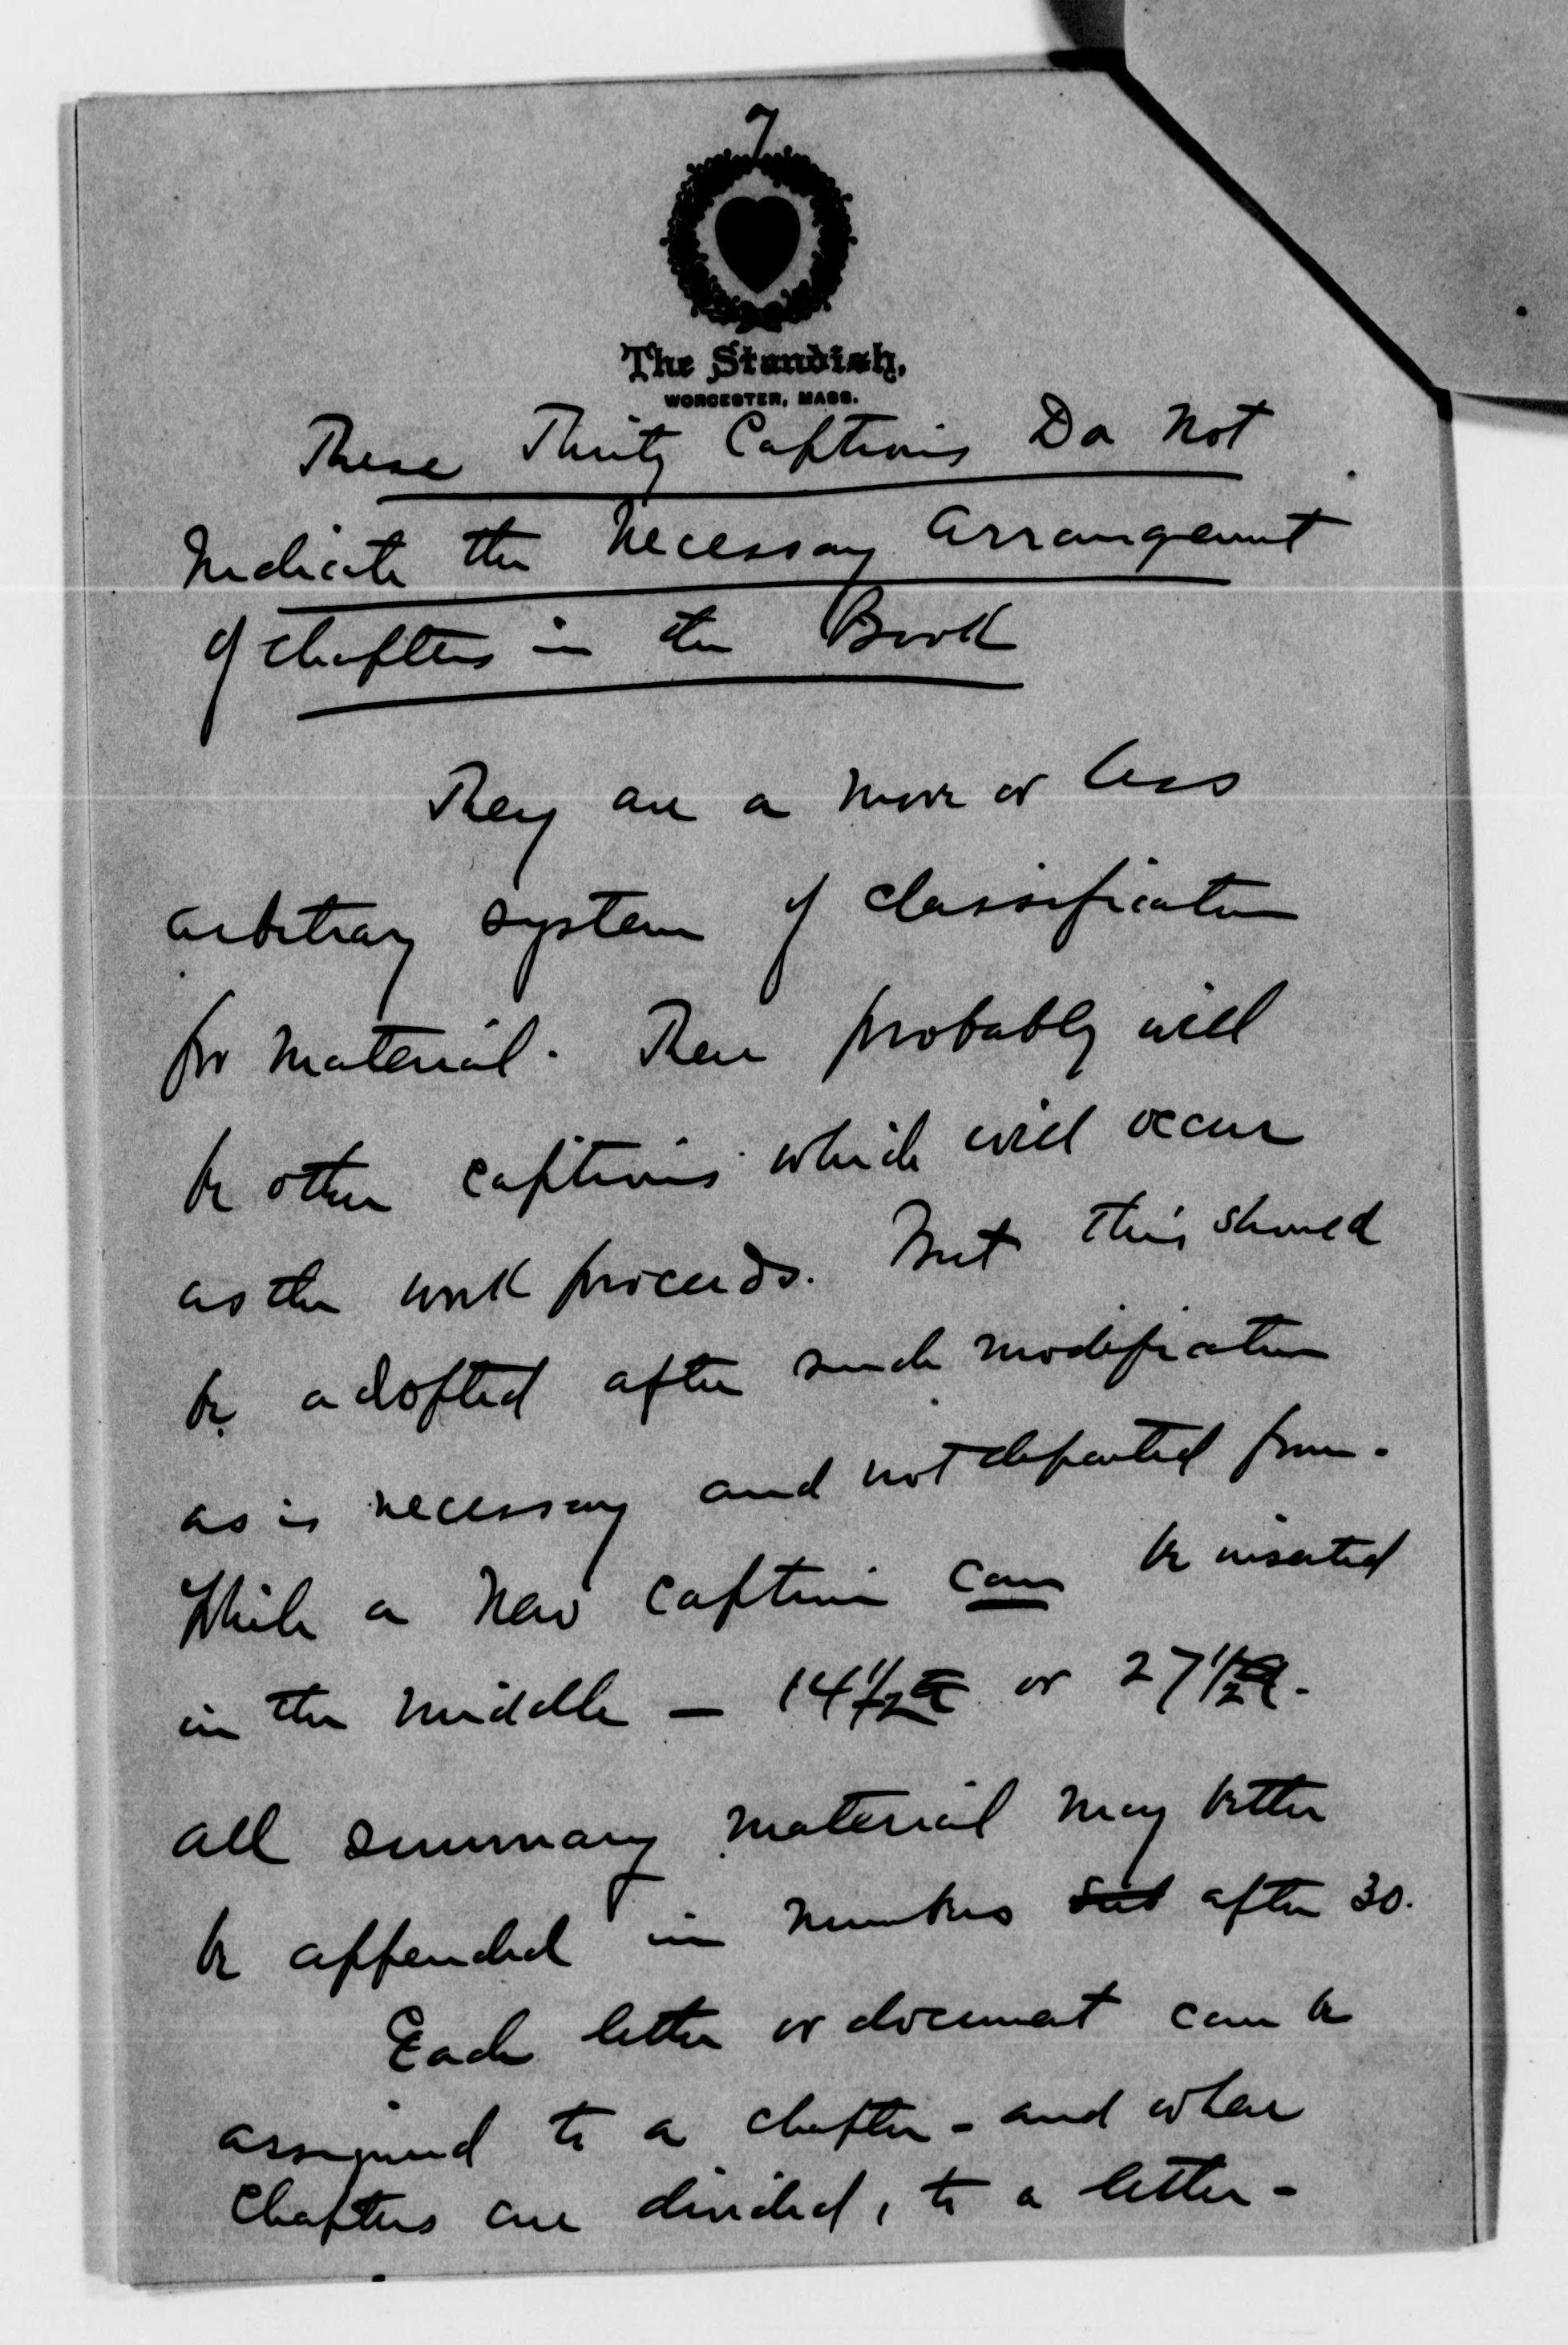 7
The Standish,
WORCESTER, MASS.
These Thirty Captions Do Not
Indicate the Necessary Arrangement
of Chapters in the Book
They are a more or less
arbitrary system of classification
for material. There probably will
be other captions which will occur
as the work proceeds. But this should
be adopted after such modification
as is necessary and not departed from.
While a new caption can be inserted
in the middle — 14 1/2 or 27 1/2.
all summary material may better
be appended in numbers after 30.
Each letter or document can be
assigned to a chapter - and where
chapters are divided, to a letter -